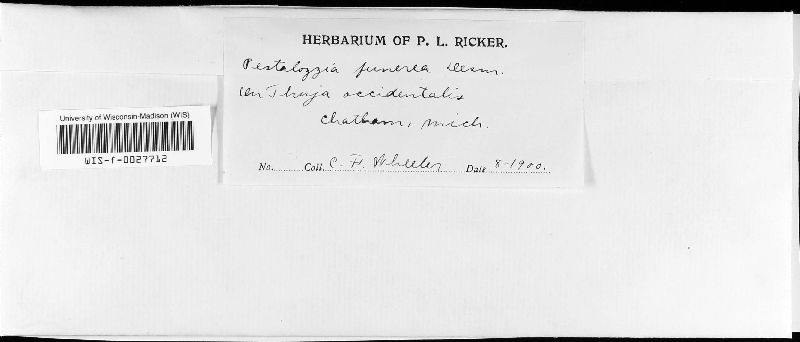 HERBARIUM OF P. L. RICKER.
Pestalozzia funerea Desm.
On Thuja occidentalis
Chatham, Mich.
No. Coll. C. F. Wheeler Date 8-1900.
University of Wisconsin-Madison (WIS)
WIS-f-0027712